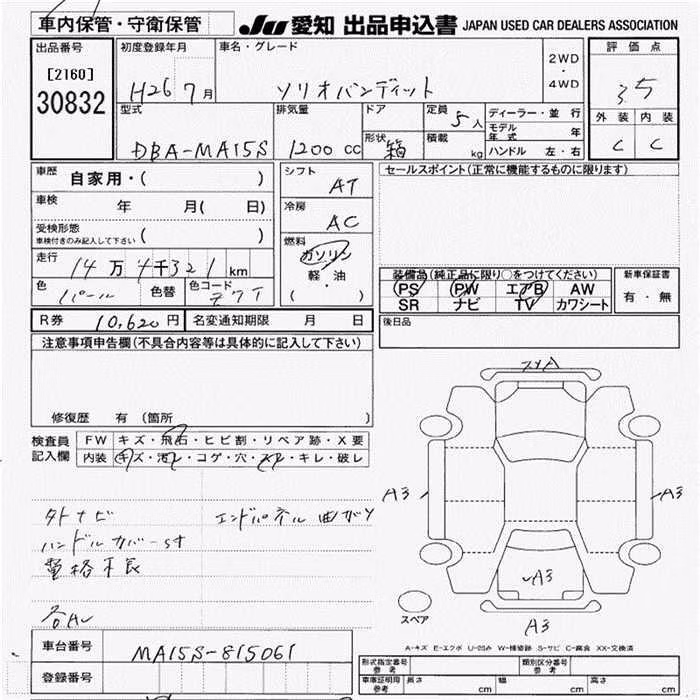 車内保管・守衛保管
JU 愛知 出品申込書 JAPAN USED CAR DEALERS ASSOCIATION
出品番号
[2160]
30832
初度登録年月
H26 7月
車名・グレード
ソリオバンディット
2WD
・
4WD
評価点
3.5
外装 内装
C C
型式
DBA-MA15S
排気量
1200 cc
ドア
形状 箱
定員 5人
積載 kg
ディーラー・並行
モデル年式 年
ハンドル 左・右
車歴 自家用・( )
車検 年 月( 日)
受検形態
車検付きのみ記入して下さい ( )
走行 14万4千321km
色 パール 色替 色コード ZVT
シフト AT
冷房 AC
燃料
ガソリン
軽・油
( )
セールスポイント(正常に機能するものに限ります)
装備品(純正品に限り○をつけてください)
PS PW エアB AW
SR ナビ TV カワシート
新車保証書
有・無
後日品
R券 10,620円 名変通知期限 月 日
注意事項申告欄(不具合内容等は具体的に記入して下さい)
修復歴 有 (箇所 )
検査員
記入欄
FW キズ・飛石・ヒビ割・リペア跡・X要
内装 キズ・汚レ・コゲ・穴・スレ・キレ・破レ
外ナビ エンドパネル曲がり
ハンドルカバーst
電格不良
各AU
A3 A3
A3
A3
スペア
A-キズ E-エクボ U-凹み W-補修跡 S-サビ C-腐食 XX-交換済
車台番号 MA15S-815061
登録番号
形式指定番号
参考
類別区分番号
参考
車庫証明用
参考
長さ cm 幅 cm 高さ cm